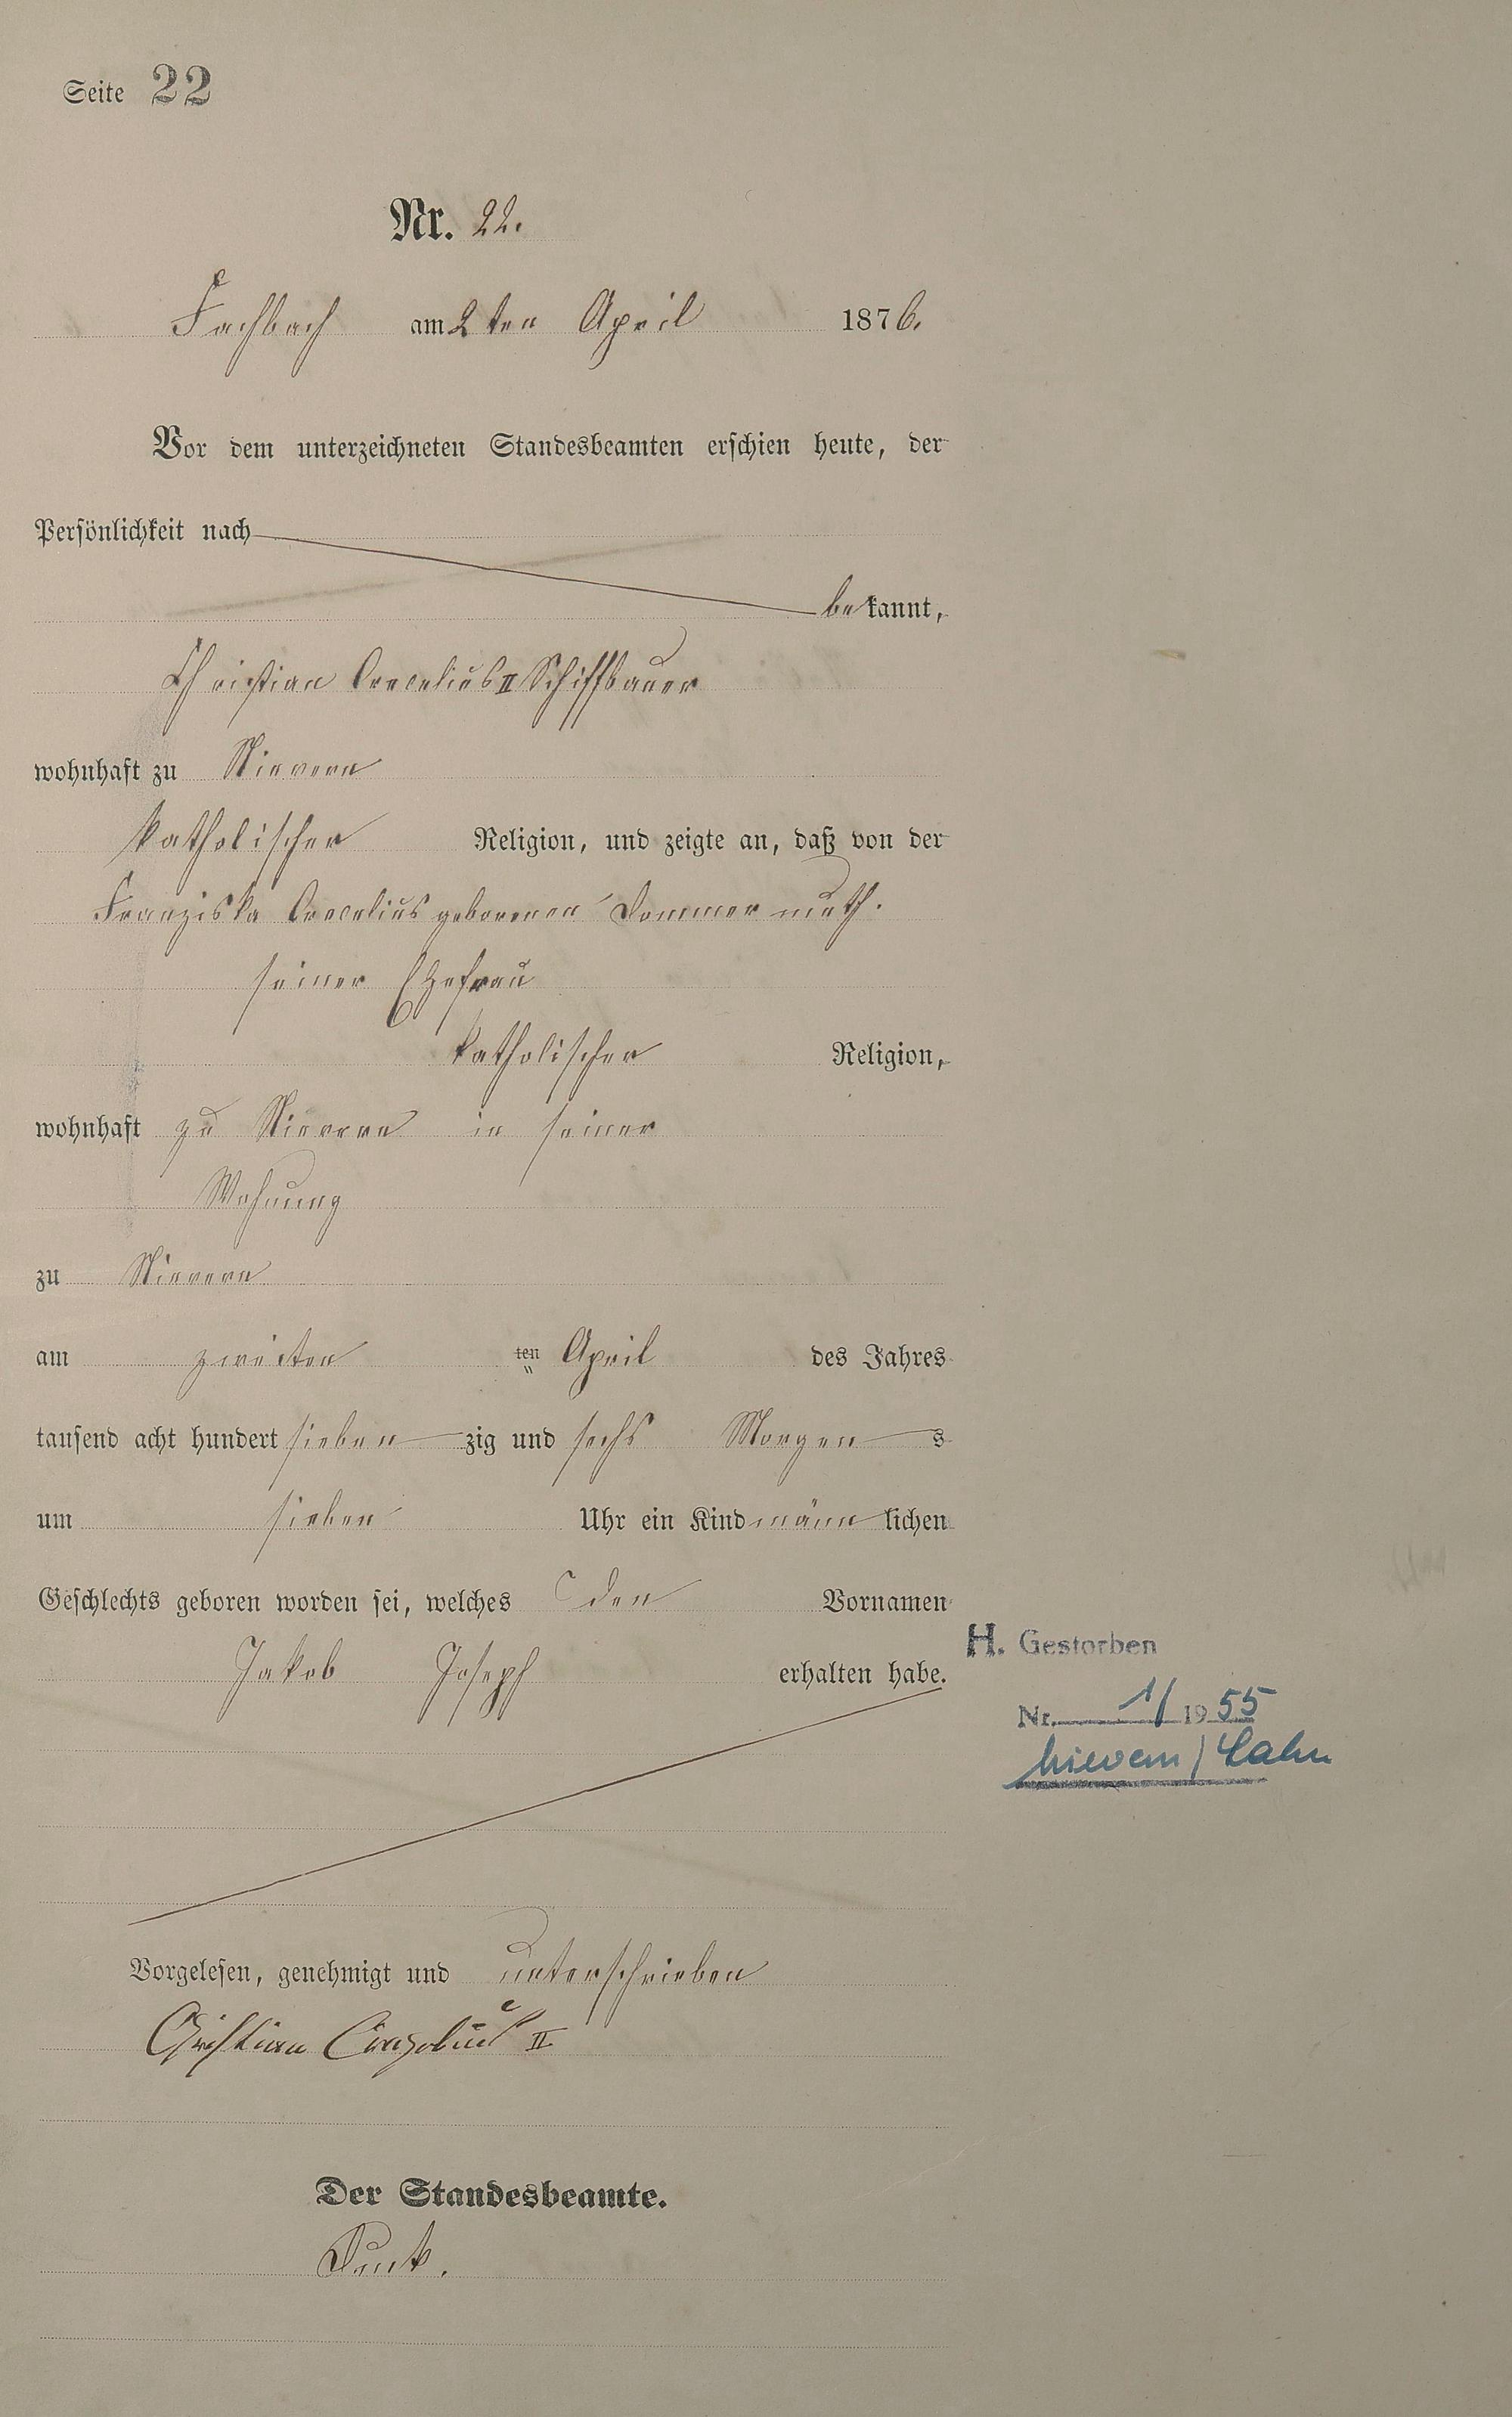 Seite 22
Nr. 22.
Fachbach am 2ten April 1876.
Vor dem unterzeichneten Standesbeamten erschien heute, der
Persönlichkeit nach
bekannt,
Christian Crecelius II Schiffbauer
wohnhaft zu Nievern
katholischer Religion, und zeigte an, daß von der
Franziska Crecelius geborenen Dommermuth.
seiner Ehefrau
katholischer Religion,
wohnhaft zu Nievern in seiner
Wohnung
zu Nievern
am zweiten ten April des Jahres
tausend acht hundert siebenzig und sechs Morgens
um sieben Uhr ein Kind männlichen
Geschlechts geboren worden sei, welches den Vornamen
Jakob Joseph erhalten habe.
H. Gestorben
Nr. 1/1955
Nievern/Lahn
Vorgelesen, genehmigt und unterschrieben
Christian II
Der Standesbeamte.